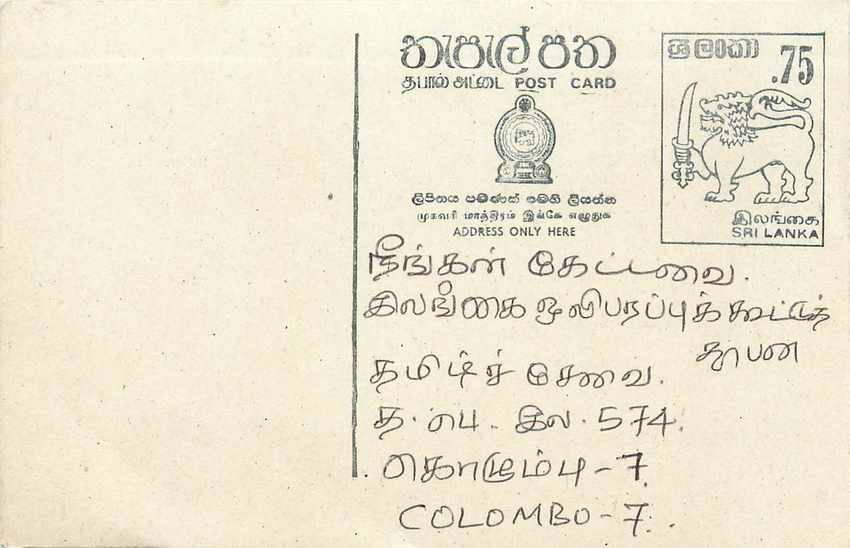 තැපැල් පත
தபால் அட்டை POST CARD
ලිපිනය පමණක් මෙහි ලියන්න
முகவரி மாத்திரம் இங்கே எழுதுக
ADDRESS ONLY HERE
ශ්‍රී ලංකා
.75
இலங்கை
SRI LANKA
நீங்கள் கேட்டவை.
இலங்கை ஒலிபரப்புக் கூட்டுத்
தாபன
தமிழ்ச் சேவை.
த. பெ. இல. 574.
கொழும்பு - 7
COLOMBO - 7.